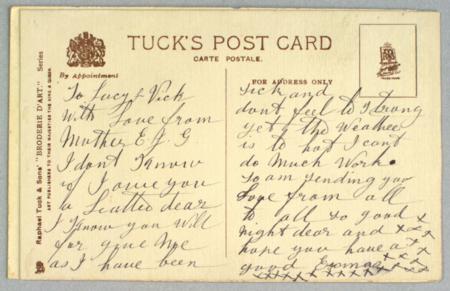 TUCK'S POST CARD
CARTE POSTALE.
By Appointment
FOR ADDRESS ONLY
Raphael Tuck & Sons' "BRODERIE D'ART." Series
ART PUBLISHERS TO THEIR MAJESTIES THE KING & QUEEN.
To Lucy & Vick
With Love from
Mother E J G
I dont Know
if I owe you
a Leatter dear
I Know you Will
for give Me
as I have been
sick and
dont feel to Strong
yet & the Weather
is to hot I cant
do Much Work.
so am sending you
Love from all
to all so good
night dear and x x x
hope you have a
good Exmas x x x
x x x x x x x x x x